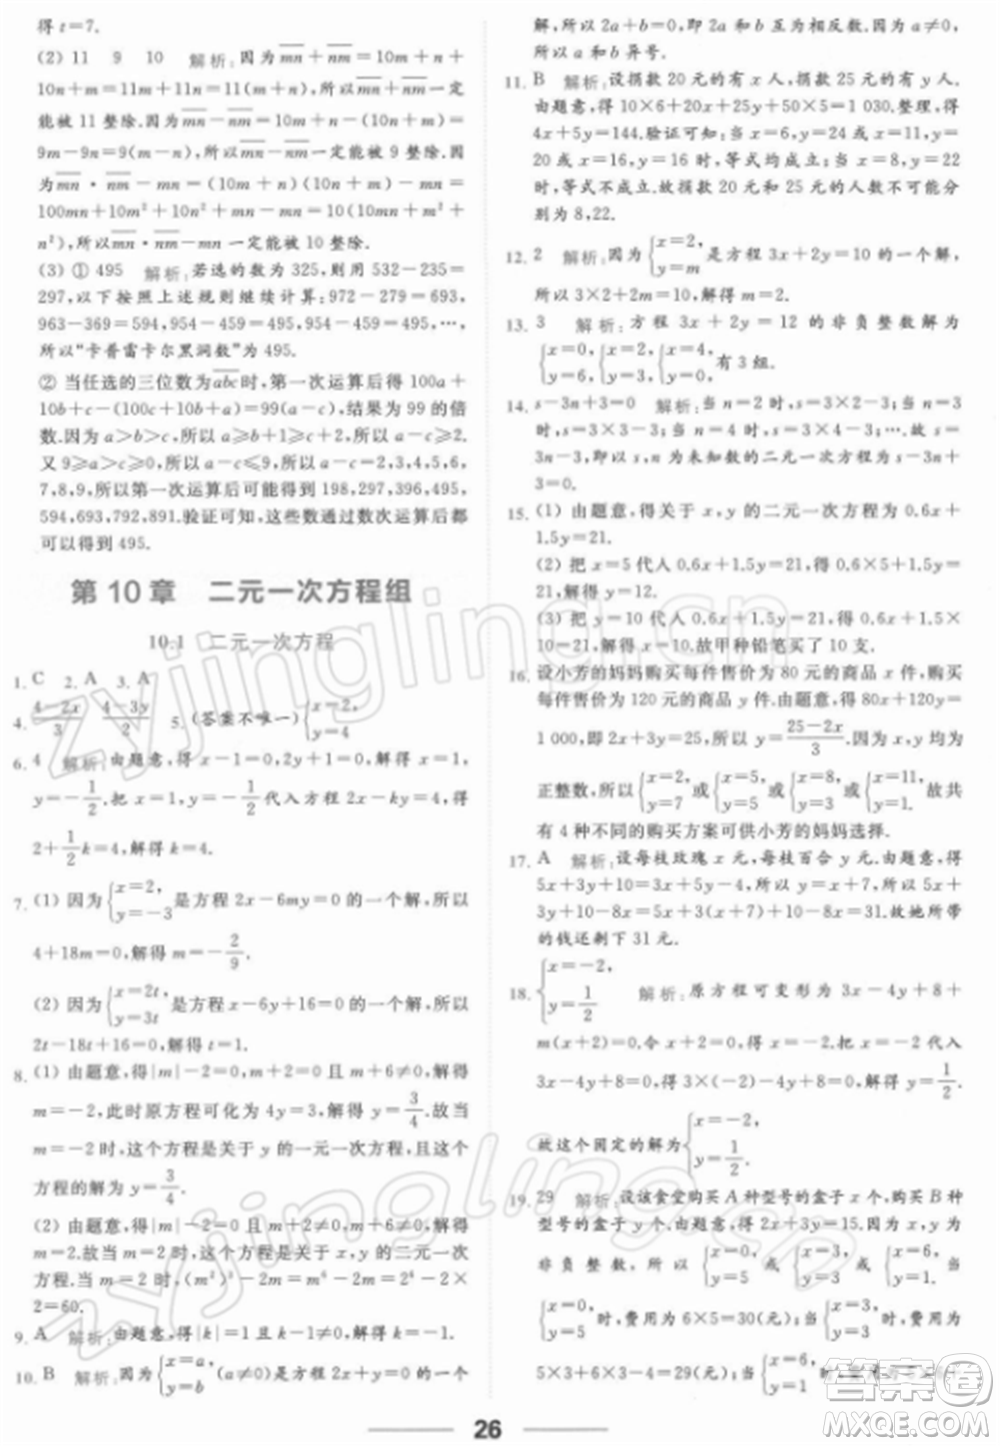 得 t=7.
(2) 11 9 10 解析:因为 mn+nm=10m+n+
10n+m=11m+11n=11(m+n),所以 mn+nm 一定
能被 11 整除.因为 mn-nm=10m+n-(10n+m)=
9m-9n=9(m-n),所以 mn-nm 一定能被 9 整除.因
为 mn·nm-mn=(10m+n)(10n+m)-(10m+n)=
100mn+10m²+10n²+mn-10m-n=10(10mn+m²+
n²)
(3) ① 495 解析:若选的数为 325,则 532-235=
297,以下按照上述规则继续计算:972-279=693,
963-369=594,954-459=495,954-459=495,…,
所以“卡普雷卡尔黑洞数”为 495.
② 当任选的三位数为 abc 时,第一次运算后得 100a+
10b+c-(100c+10b+a)=99(a-c),结果为 99 的倍
数.因为 a>b>c,所以 a≥b+1≥c+2.所以 a-c≥2.
又 9≥a>b>c≥0,所以 a-c≤9.所以 a-c=2,3,4,5,6,
7,8,9,所以第一次运算后可能得到 198,297,396,495,
594,693,792,891.验证可知,这些数通过数次运算后都
可以得到 495.
第 10 章 二元一次方程组
10.1 二元一次方程
1. C 2. A 3. A
4. (4-2x)/3 (4-3y)/2 5. (答案不唯一){x=2, y=4
6. 4 解析:由题意,得 x-1=0,2y+1=0,解得 x=1,
y=-1/2.把 x=1,y=-1/2代入方程 2x-ky=4,得
2+1/2k=4,解得 k=4.
7. (1) 因为{x=2, y=-3 是方程 2x-6my=0 的一个解,所以
4+18m=0,解得 m=-2/9.
(2) 因为{x=2t, y=3t 是方程 x-6y+16=0 的一个解,所以
2t-18t+16=0,解得 t=1.
8. (1) 由题意,得|m|-2=0,且 m-2≠0,解得
m=-2,此时原方程可化为 4y=3,解得 y=3/4.故当
m=-2 时,这个方程是关于 y 的一元一次方程,且这个
方程的解为 y=3/4.
(2) 由题意,得|m|-2≠0,
故当 m=2 时,这个方程是关于 x,y 的二元一次
方程.当 m=2 时,
2=60.
9. A 解析:由题意,得|k|=1 且 k-1≠0,解得 k=-1.
10. B 解析:因为{x=a, y=b (a≠0)是方程 2x+y=0 的一个
解,所以 2a+b=0(a≠0),即 b=-2a.因为 a≠0,
所以 a 和 b 异号.
11. B 解析:设捐款 20 元的有 x 人,捐款 25 元的有 y 人.
由题意,得 10×6+20x+25y+50×5=1 030.整理,得
4x+5y=144.验证可知:当 x=6,y=24 时,x=11,y=20
或 x=16,y=16 时,等式均成立;当 x=8,y=22
时,等式不成立.故捐款 20 元和 25 元的人数不可能分
别为 8,22.
12. 2 解析:因为{x=2, y=m 是方程 3x+2y=10 的一个解,
所以 3×2+2m=10,解得 m=2.
13. 3 解析:方程 3x+2y=12 的非负整数解为
{x=0, y=6, {x=2, y=3, {x=4, y=0, 有 3 组.
14. s-3n+3=0 解析:当 n=2 时,s=3;当 n=3
时,s=3×3-3=6;当 n=4 时,s=3×4-3=9.
所以以 s,n 为未知数的二元一次方程为 s-3n+
3=0.
15. (1) 由题意,得关于 x,y 的二元一次方程为 0.6x+
1.5y=21.
(2) 把 x=5 代入 0.6x+1.5y=21,得 0.6×5+1.5y=21,
解得 y=12.
(3) 把 y=10 代入 0.6x+1.5y=21,得 0.6x+1.5×
10=21,解得 x=10.故甲种铅笔买了 10 支.
16. 设小芳的妈妈购买每件售价为 80 元的商品 x 件,购买
每件售价为 120 元的商品 y 件.由题意,得 80x+120y=
1 000,即 2x+3y=25,所以 y=(25-2x)/3.因为 x,y 均为
正整数,所以{x=2, y=7 或{x=5, y=5 或{x=8, y=3 或{x=11, y=1. 故共
有 4 种不同的购买方案可供小芳的妈妈选择.
17. A 解析:设每枝玫瑰 x 元,每枝百合 y 元.由题意,得
5x+3y+10=3x+5y-4,所以 y=x+7.所以 5x+
3y+10=5x+3(x+7)+10=8x+31.故她所带
的钱还剩下 31 元.
18. {x=-2, y=1/2 解析:原方程可变形为 3x-4y+8+
m(x+2)=0,所以 x+2=0,3x-4y+8=0.所以
x=-2,所以 3×(-2)-4y+8=0,解得 y=1/2.
故这个固定的解为{x=-2, y=1/2.
19. 29 解析:设该食堂购买 A 种型号的盒子 x 个,购买 B 种
型号的盒子 y 个.由题意,得 2x+3y=15.因为 x,y 均为
非负整数,所以{x=0, y=5 或{x=3, y=3 或{x=6, y=1. 当
{x=0, y=5 时,费用为 6×5=30(元);当{x=3, y=3 时,费用为
5×3+6×3-4=29(元),当{x=6, y=1 时,
26
zyjingling.cn
zyjingling.cn
答案圈
MXQE.COM